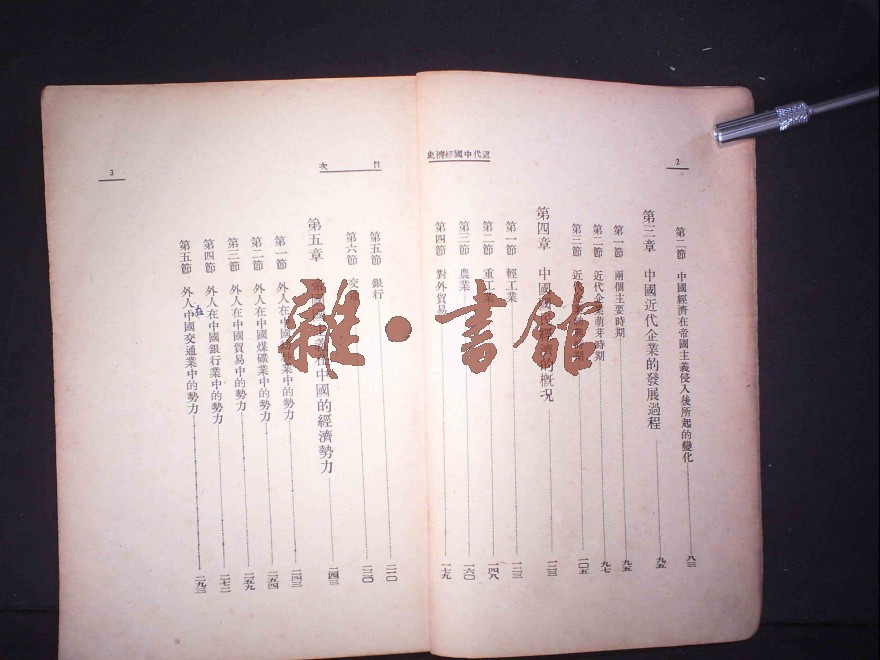 2
近代中國經濟史
第二節 中國經濟在帝國主義侵入後所起的變化 八三
第三章 中國近代企業的發展過程 九五
第一節 兩個主要時期 九五
第二節 近代企業萌芽時期 九七
第三節 近代 時期 一〇五
第四章 中國 經濟的概況 一二三
第一節 輕工業 一二三
第二節 重工業 一四八
第三節 農業 一六〇
第四節 對外貿易 一七九
目次
3
第五節 銀行 二一〇
第六節 交通 二二〇
第五章 帝國主義在中國的經濟勢力 二四三
第一節 外人在中國 業中的勢力 二四三
第二節 外人在中國煤礦業中的勢力 二五四
第三節 外人在中國貿易中的勢力 二五九
第四節 外人在中國銀行業中的勢力 二七二
第五節 外人在中國交通業中的勢力 二九三
雜·書館